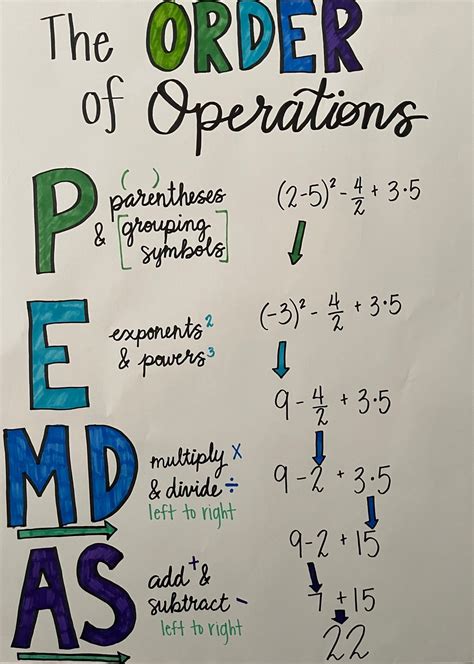 The ORDER
of Operations
P
( )
parentheses
& [grouping
symbols]
(2-5)² - 4/2 + 3·5
E
exponents²
& powers³
(-3)² - 4/2 + 3·5
9 - 4/2 + 3·5
MD
multiply ×
& divide ÷
left to right
9 - 2 + 3·5
9 - 2 + 15
AS
add + &
subtract -
left to right
7 + 15
22